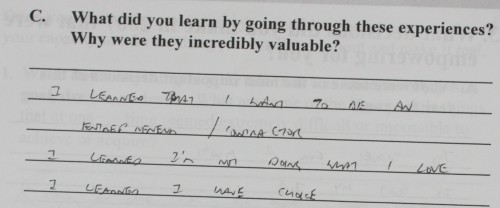 C. What did you learn by going through these experiences?
Why were they incredibly valuable?
I LEARNED THAT I WANT TO BE AN
ENTREPRENEUR / CONTRACTOR
I LEARNED I'M NOT DOING WHAT I LOVE
I LEARNED I HAVE CHOICE